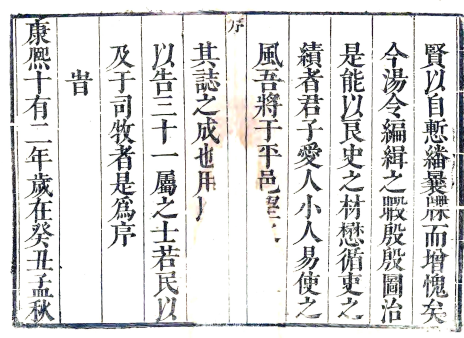 賢以自慙繙曩牒而增愧矣
今湯令編緝之暇殷殷圖治
是能以良史之材懋循吏之
績者君子愛人小人易使之
風吾將于平邑望
序
其誌之成也用
以告三十一屬之士若民以
及于司牧者是爲序
旹
康熙十有二年歲在癸丑孟秋